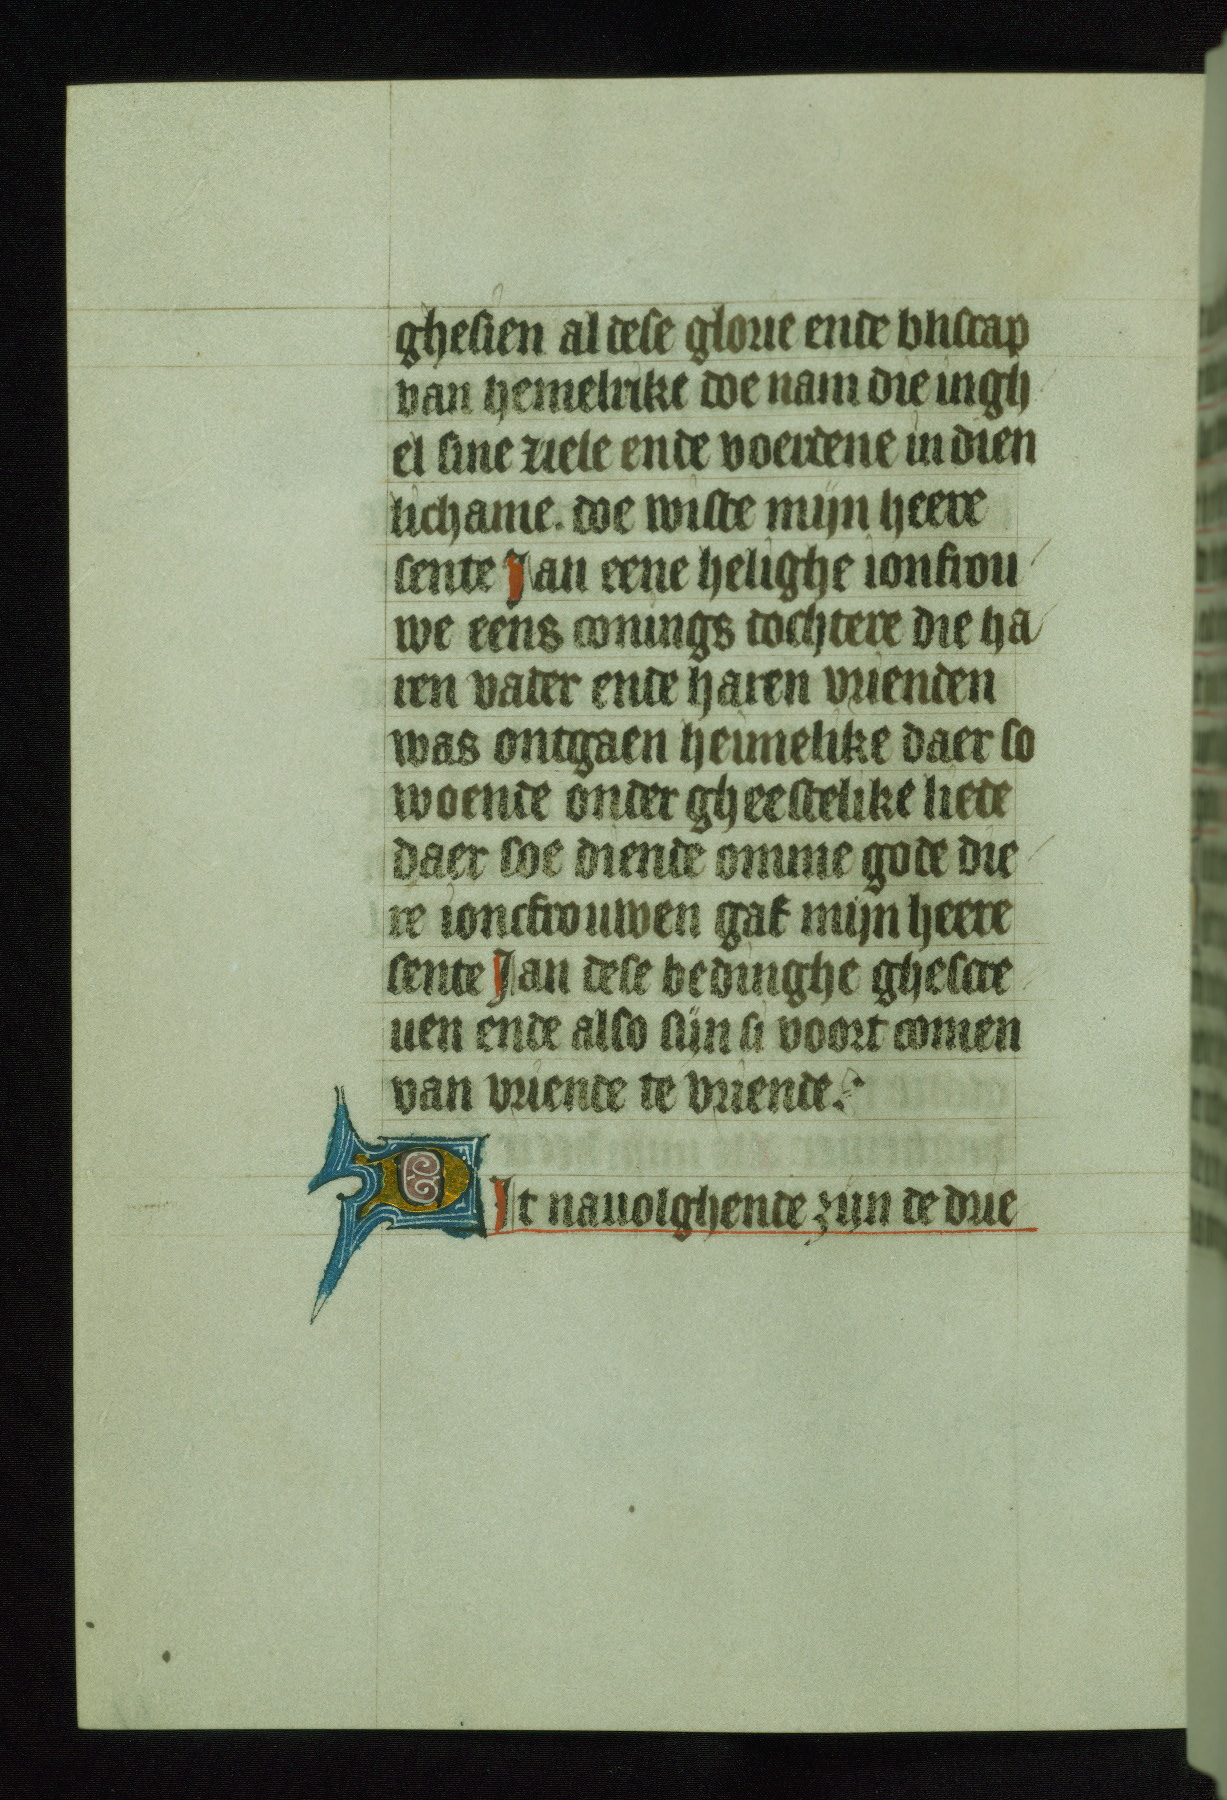 ghesien al dese glorie ende bliscap
van hemelrike doe nam die ingh
el sine ziele ende voerdene in dien
lichame. doe wiste mijn heere
sente Jan eene helighe ionfrou
we eens conings dochtere die ha
ren vader ende haren vrienden
was ontgaen heimelike daer so
woende onder gheestelike liede
daer soe diende omme gode die
re ioncfrouwen gaf mijn heere
sente Jan dese bedinghe ghescre
uen ende also sijn si voort comen
van vriende te vriende.
DIt nauolghende zijn de drie